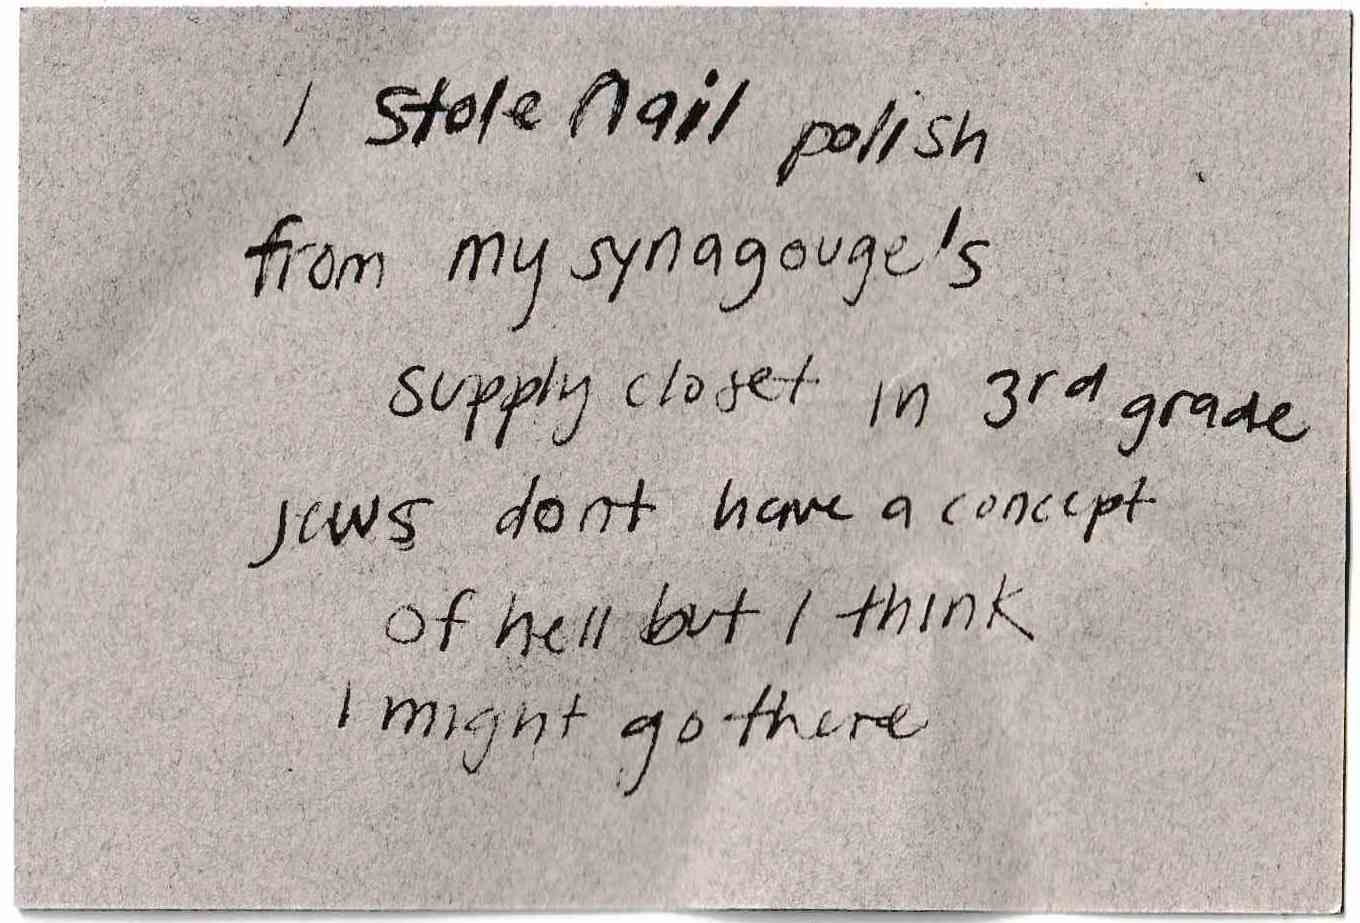 I stole nail polish
from my synagouge's
supply closet in 3rd grade
jews dont have a concept
of hell but I think
I might go there